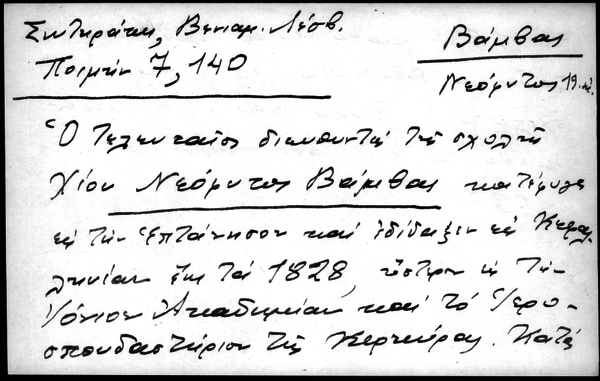 Σωκράτης, Βενιαμ. Λέσβ.
Ποιμήν 7, 140
Βάμβας
Νεόφυτος 19 αἰ.
Ὁ τελευταῖος διευθυντής τῆς σχολῆς
Χίου Νεόφυτος Βάμβας κατέφυγε
εἰς τήν Ἑπτάνησον καί ἐδίδαξεν εἰς Κεφαλ-
ληνίαν ἕως τά 1828, ὕστερον εἰς τήν
Ἰόνιον Ἀκαδημίαν καί τό Ἱερο-
σπουδαστήριον τῆς Κερκύρας. Κατά